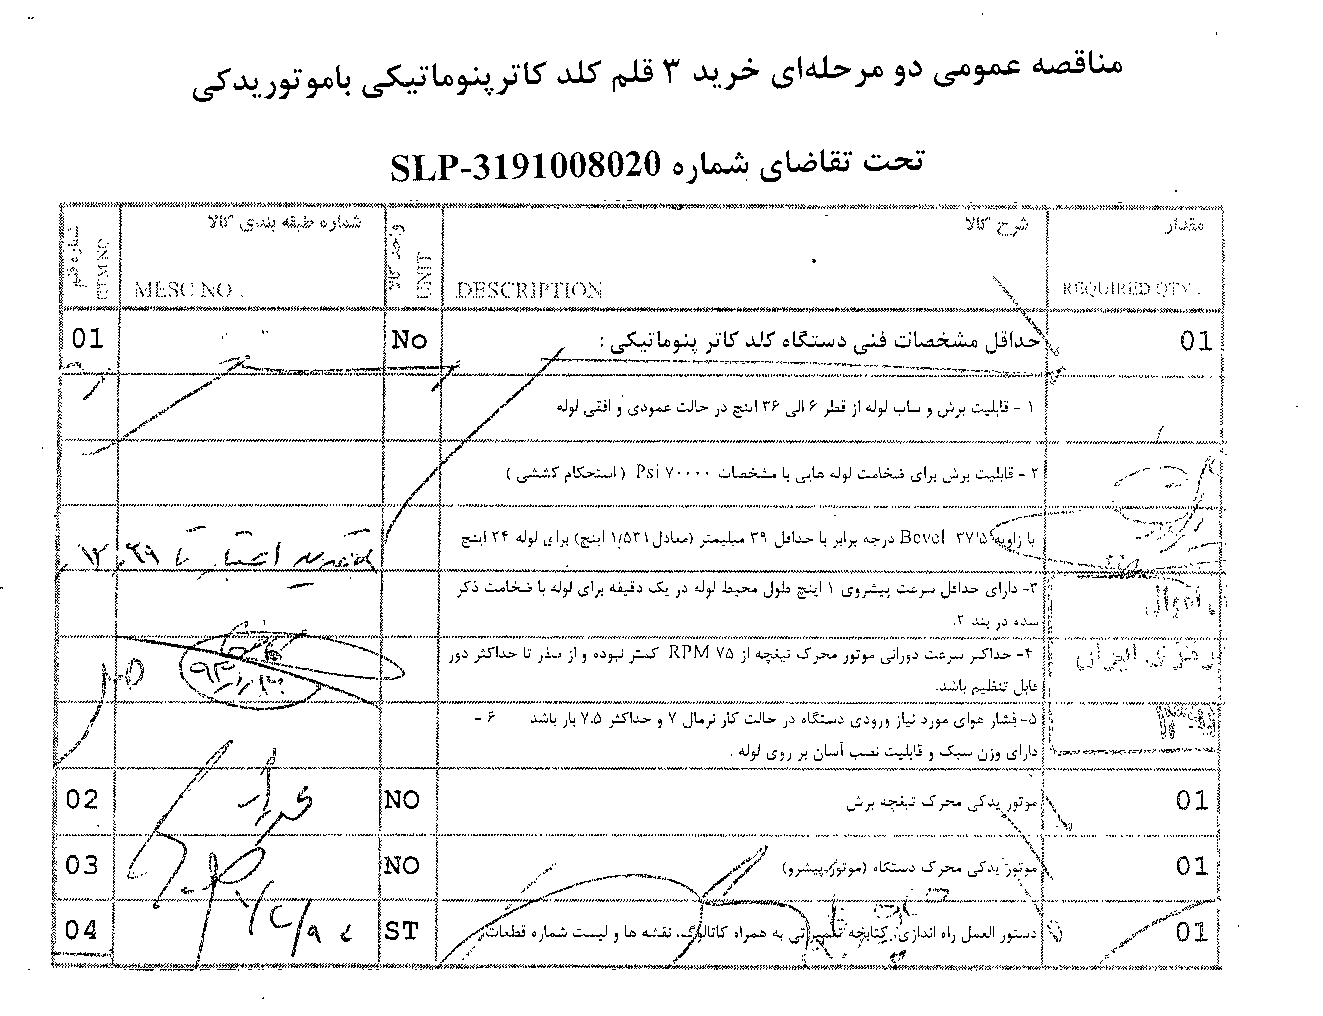 مناقصه عمومی دو مرحله‌ای خرید ۳ قلم کلد کاترپنوماتیکی باموتوریدکی
تحت تقاضای شماره SLP-3191008020
شماره قلم ITEM NO
شماره طبقه بندی کالا
MESC NO .
واحد کالا UNIT
شرح کالا
DESCRIPTION
مقدار
REQUIRED QTY.
01 No حداقل مشخصات فنی دستگاه کلد کاتر پنوماتیکی : 01
۱ - قابلیت برش و ساب لوله از قطر ۶ الی ۳۶ اینچ در حالت عمودی و افقی لوله
۲ - قابلیت برش برای ضخامت لوله هایی با مشخصات Psi ۷۰۰۰۰ ( استحکام کششی )
با زاویه Bevel ۳۷/۵ درجه برابر با حداقل ۳۹ میلیمتر (معادل ۱/۵۳۱ اینچ) برای لوله ۲۴ اینچ
۳- دارای حداقل سرعت پیشروی ۱ اینچ طول محیط لوله در یک دقیقه برای لوله با ضخامت ذکر
شده در بند ۲.
۴- حداکثر سرعت دورانی موتور محرک تیغچه از RPM ۷۵ کمتر نبوده و از صفر تا حداکثر دور
قابل تنظیم باشد.
۵- فشار هوای مورد نیاز ورودی دستگاه در حالت کار نرمال ۷ و حداکثر ۷.۵ بار باشد ۶ -
دارای وزن سبک و قابلیت نصب آسان بر روی لوله .
02 NO موتور یدکی محرک تیغچه برش 01
03 NO موتور یدکی محرک دستگاه (موتور پیشرو) 01
04 ST دستور العمل راه اندازی، کتابچه تعمیراتی به همراه کاتالوگ، نقشه ها و لیست شماره قطعات 01